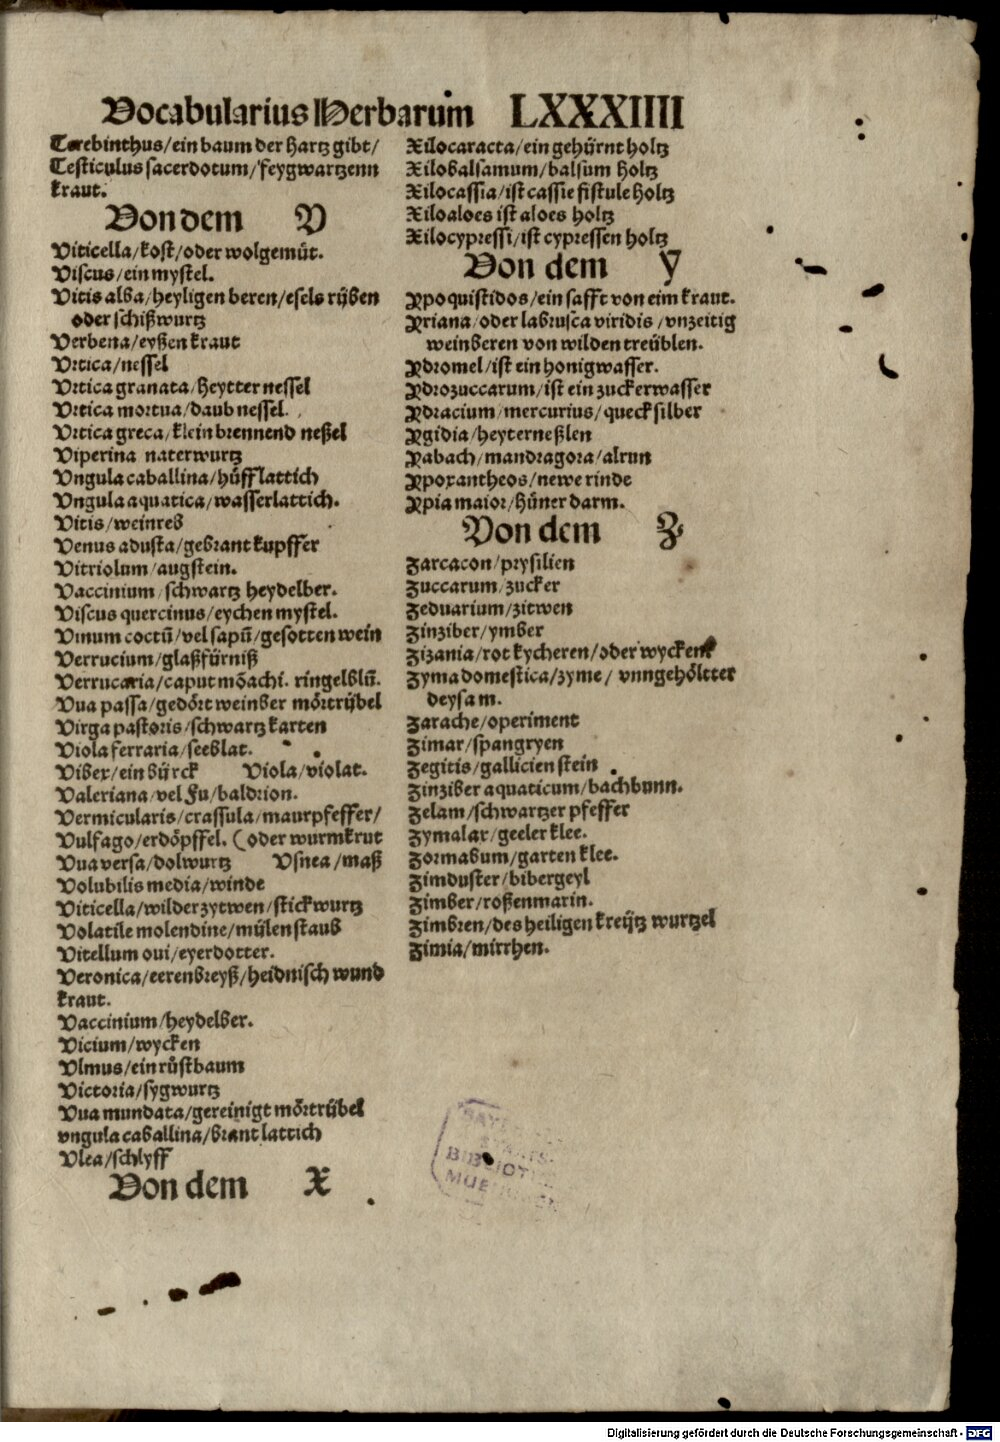 Vocabularius Herbarum LXXXIIII
Terebinthus/ein baum der hartz gibt/
Testiculus sacerdotum/feygwartzenn
kraut.
Von dem V
Viticella/kost/oder wolgemüt.
Viscus/ein mystel.
Vitis alba/heyligen beren/esels rüben
oder schißwurtz
Verbena/eyßen kraut
Vrtica/nessel
Vrtica granata/heytter nessel
Vrtica mortua/daub nessel.
Vrtica greca/klein brennend neßel
Viperina naterwurtz
Vngula caballina/hüfflattich
Vngula aquatica/wasserlattich.
Vitis/weinreb
Venus adusta/gebrant kupffer
Vitriolum/augstein.
Vaccinium/schwartz heydelber.
Viscus quercinus/eychen mystel.
Vinum coctū/vel sapū/gesotten wein
Verrucium/glaßfürniß
Verrucaria/caput mōachi. ringelblū.
Vua passa/gedört weinber mörtrübel
Virga pastoris/schwartz karten
Viola ferraria/seeblat.
Vibex/ein bürck Viola/violat.
Valeriana/vel Fu/baldrion.
Vermicularis/crassula/maurpfeffer/
Vulfago/erdöpffel. (oder wurmkrut
Vua versa/dolwurtz Vsnea/maß
Volubilis media/winde
Viticella/wilder zytwen/stickwurtz
Volatile molendine/mülenstaub
Vitellum oui/eyerdotter.
Veronica/eerenbreyß/heidnisch wund
kraut.
Vaccinium/heydelber.
Vicium/wycken
Vlmus/ein rüstbaum
Victoria/sygwurtz
Vua mundata/gereinigt mörtrübel
vngula caballina/brant lattich
Vlea/schlyff
Von dem X
Xilocaracta/ein gehürnt holtz
Xilobalsamum/balsum holtz
Xilocassia/ist cassie fistule holtz
Xiloaloes ist aloes holtz
Xilocypressi/ist cypressen holtz
Von dem Y
Ypoquistidos/ein safft von eim kraut.
Yriana/oder labrusca viridis/vnzeitig
weinberen von wilden treüblen.
Ydromel/ist ein honigwasser.
Ydrozuccarum/ist ein zuckerwasser
Ydracium/mercurius/quecksilber
Ygidia/heyterneßlen
Yabach/mandragora/alrun
Ypoxantheos/newe rinde
Ypia maior/hüner darm.
Von dem Z
Zarcacon/prysilien
Zuccarum/zucker
Zeduarium/zitwen
Zinziber/ymber
Zizania/rot kycheren/oder wyckenn
Zyma domestica/zyme/vnngehöltter
deysam.
Zarache/operiment
Zimar/spangryen
Zegitis/gallicien stein
Zinziber aquaticum/bachbunn.
Zelam/schwartzer pfeffer
Zymalar/geeler klee.
Zormabum/garten klee.
Zimduster/bibergeyl
Zimber/roßenmarin.
Zimbren/des heiligen kreütz wurtzel
Zimia/mirrhen.
BIBLIOT
Digitalisierung gefördert durch die Deutsche Forschungsgemeinschaft - DFG